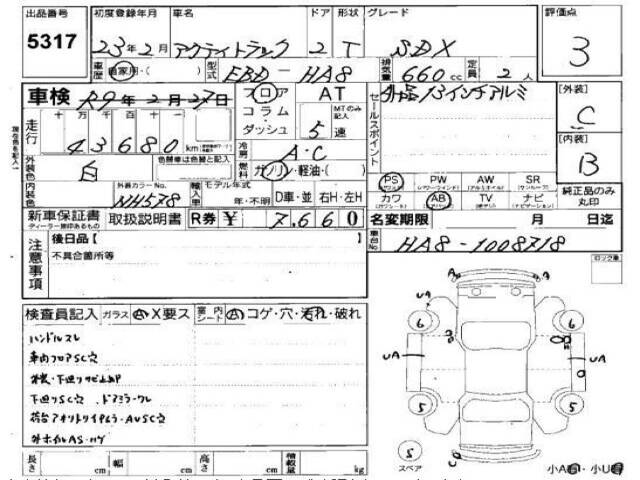 出品番号 初度登録年月 車名 ドア 形状 グレード 評価点
5317 23年2月 アクティトラック 2 T SDX 3
車歴 自家用・( ) 型式 EBD-HA8 排気量 660cc 定員 2人
車検 R9年2月27日 フロア AT セールスポイント 社外13インチアルミ [外装] C
走行 十万 万 千 百 十 一 コラム MTのみ記入
43680km ダッシュ 5速
冷房 A・C [内装] B
外装色 白 色替車は色替と記入 燃料 ガソリン・軽油・( )
PS PW AW SR 純正品のみ丸印
(パワステ) (パワーウィンド) (アルミホイル) (サンルーフ)
内装色 外装カラーNo. NH578 輸入車 モデル年式 年・不明 D車・並 右H・左H
カワ AB TV ナビ
(カワシート) (エアバッグ) (テレビ) (ナビゲーション)
新車保証書 取扱説明書 R券 ¥7,660 名変期限 月 日迄
ディーラー捺印あるもの
注意事項 後日品【 】 車台No HA8-1008718
不具合箇所等
検査員記入 ガラス A X要ス 室内シート A コゲ・穴・汚れ・破れ
ハンドルスレ
車内フロアSC穴
下廻りSC穴 ドアミラークレ
外ホイルAS・ハゲ
長さ cm 幅 cm 高さ cm 積載量 kg
ロック車
A A
UA UA
6 6
UA UA
5 5
S
スペア
C C
小A 小U
現在色を記入